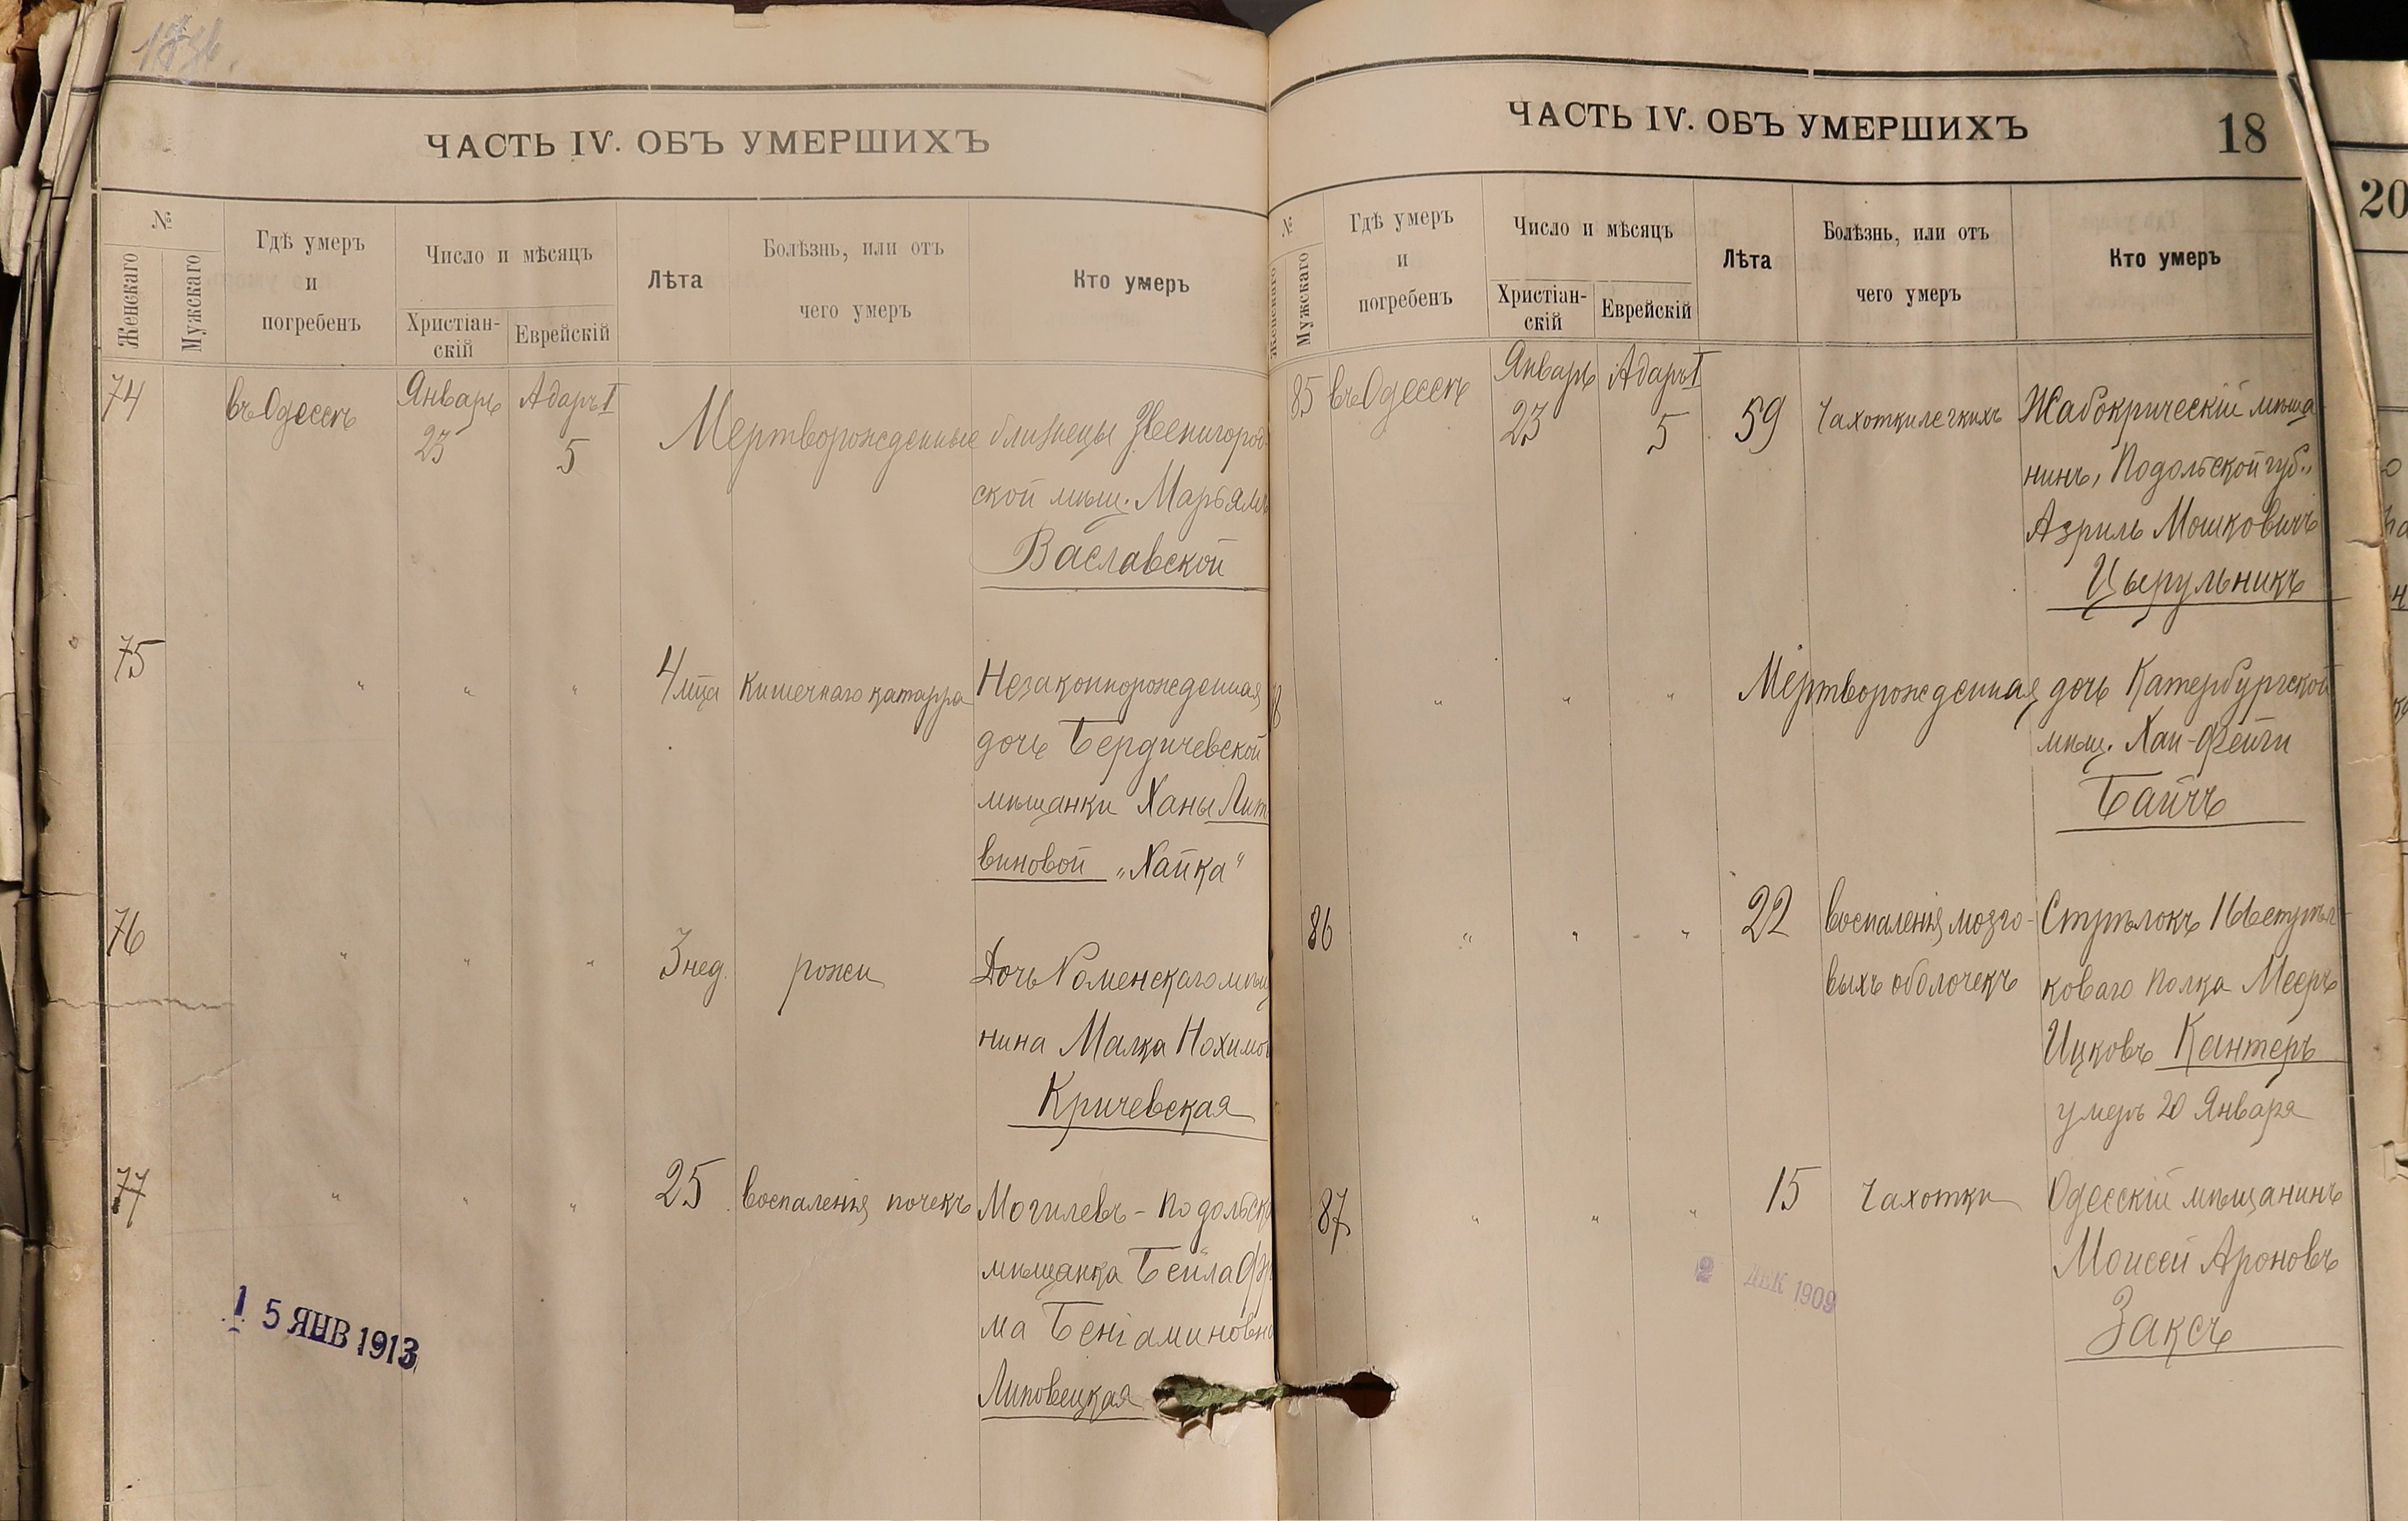 ЧАСТЬ IV. ОБЪ УМЕРШИХЪ
№
Женскаго
Мужскаго
Гдѣ умеръ
и
погребенъ
Число и мѣсяцъ
Христіан-
скій
Еврейскій
Лѣта
Болѣзнь, или отъ
чего умеръ
Кто умеръ
74 въ Одессѣ Январь 23 Адаръ I 5 Мертворожденные близнецы Звенигород
ской мѣщ. Марьямъ
Ваславской
75 " " " 4 мца Кишечнаго катарра Незаконнорожденная
дочь Бердичевской
мѣщанки Ханы Лит
виновой „Хайка"
76 " " " 3 нед. рожи Дочь Роменскаго мѣщ
нина Малка Нохимов
Кричевская
77 " " " 25 воспаленія почекъ Могилевъ-Подольск
мѣщанка Бейла
ма Беніаминовна
Липовецкая
1 5 ЯНВ 1913
ЧАСТЬ IV. ОБЪ УМЕРШИХЪ 18
№
Женскаго
Мужскаго
Гдѣ умеръ
и
погребенъ
Число и мѣсяцъ
Христіан-
скій
Еврейскій
Лѣта
Болѣзнь, или отъ
чего умеръ
Кто умеръ
85 въ Одессѣ Январь 23 Адаръ I 5 59 Чахотки легкихъ Жабокрический мѣща
нинъ, Подольской губ.,
Азриль Мошковичъ
Цырульникъ
" " " Мертворожденная дочь Катербургской
мѣщ. Хаи-Фейги
Байчъ
86 " " " 22 воспаленія мозго- Стрѣлокъ 16
выхъ оболочекъ коваго полка Мееръ
Ицковъ Кантеръ
умеръ 20 Января
87 " " " 15 Чахотки Одесскій мѣщанинъ
Моисей Ароновъ
Заксъ
2 ДЕК 1909
20